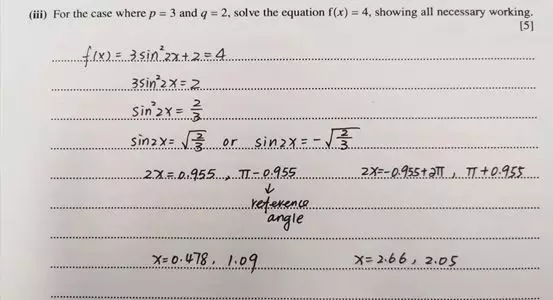 (iii) For the case where p = 3 and q = 2, solve the equation f(x) = 4, showing all necessary working.
[5]
f(x) = 3sin²2x + 2 = 4
3sin²2x = 2
sin²2x = 2/3
sin2x = √(2/3) or sin2x = -√(2/3)
2x = 0.955 , π - 0.955 2x = -0.955 + 2π , π + 0.955
↓
reference
angle
x = 0.478 , 1.09 x = 2.66 , 2.05